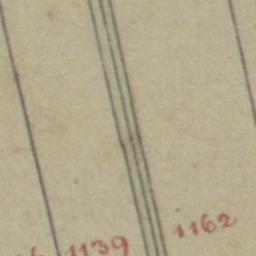 1139 1162